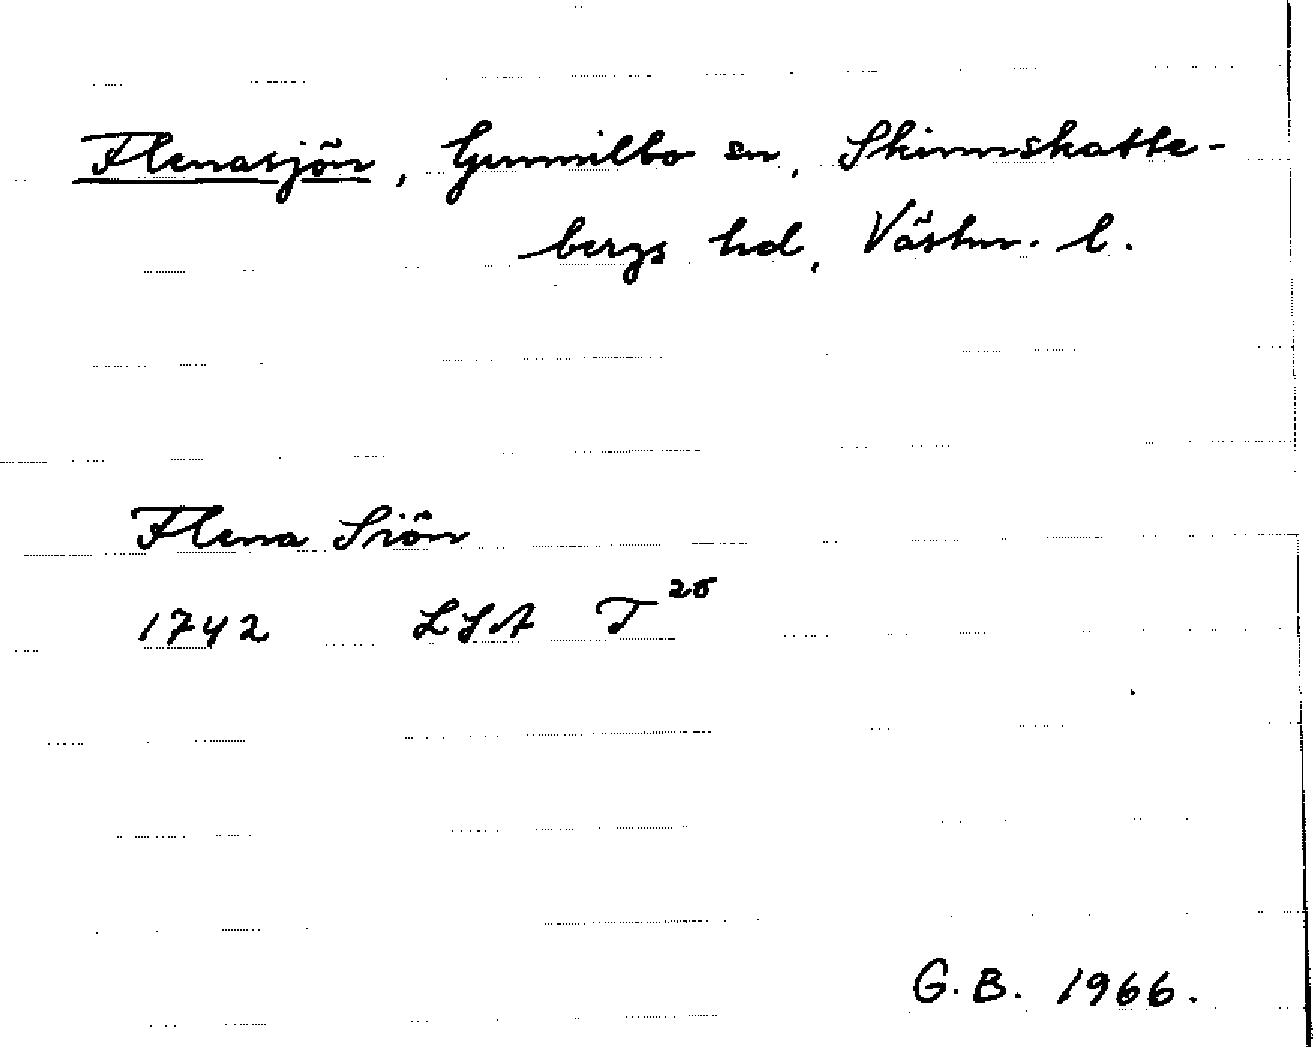 Flenasjön, Gunnilbo sn, Skinnskatte-
bergs hd, Västm. l.
Flena Siön
1742 LSA T 25
G.B. 1966.